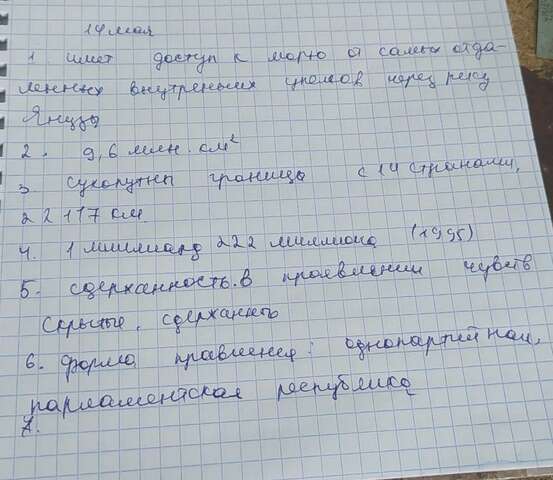 14 мая
1 имет доступ к морю из самых отда-
ленных внутренних уголков через реку
Янцзы
2. 9,6 млн. км²
3 сухопутны границы с 14 странами,
22 117 км
4. 1 миллиард 222 миллиона (1995)
5. сдержанность.в проявлении чувств
скрытые, сдержанно
6. форма правления: однопартийная,
парламентская республика
7.